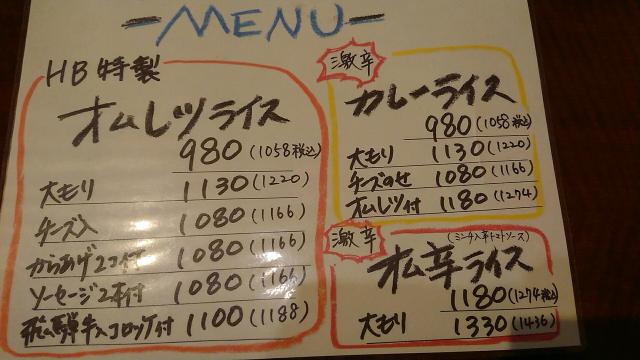 -MENU-
HB特製
オムレツライス
980(1058税込)
大もり 1130(1220)
チーズ入 1080(1166)
からあげ2コ付 1080(1166)
ソーセージ2本付 1080(1166)
飛騨牛入コロッケ付 1100(1188)
激辛
カレーライス
980(1058税込)
大もり 1130(1220)
チーズのせ 1080(1166)
オムレツ付 1180(1274)
激辛
(ミンチ入辛トマトソース)
オム辛ライス
1180(1274税込)
大もり 1330(1436)